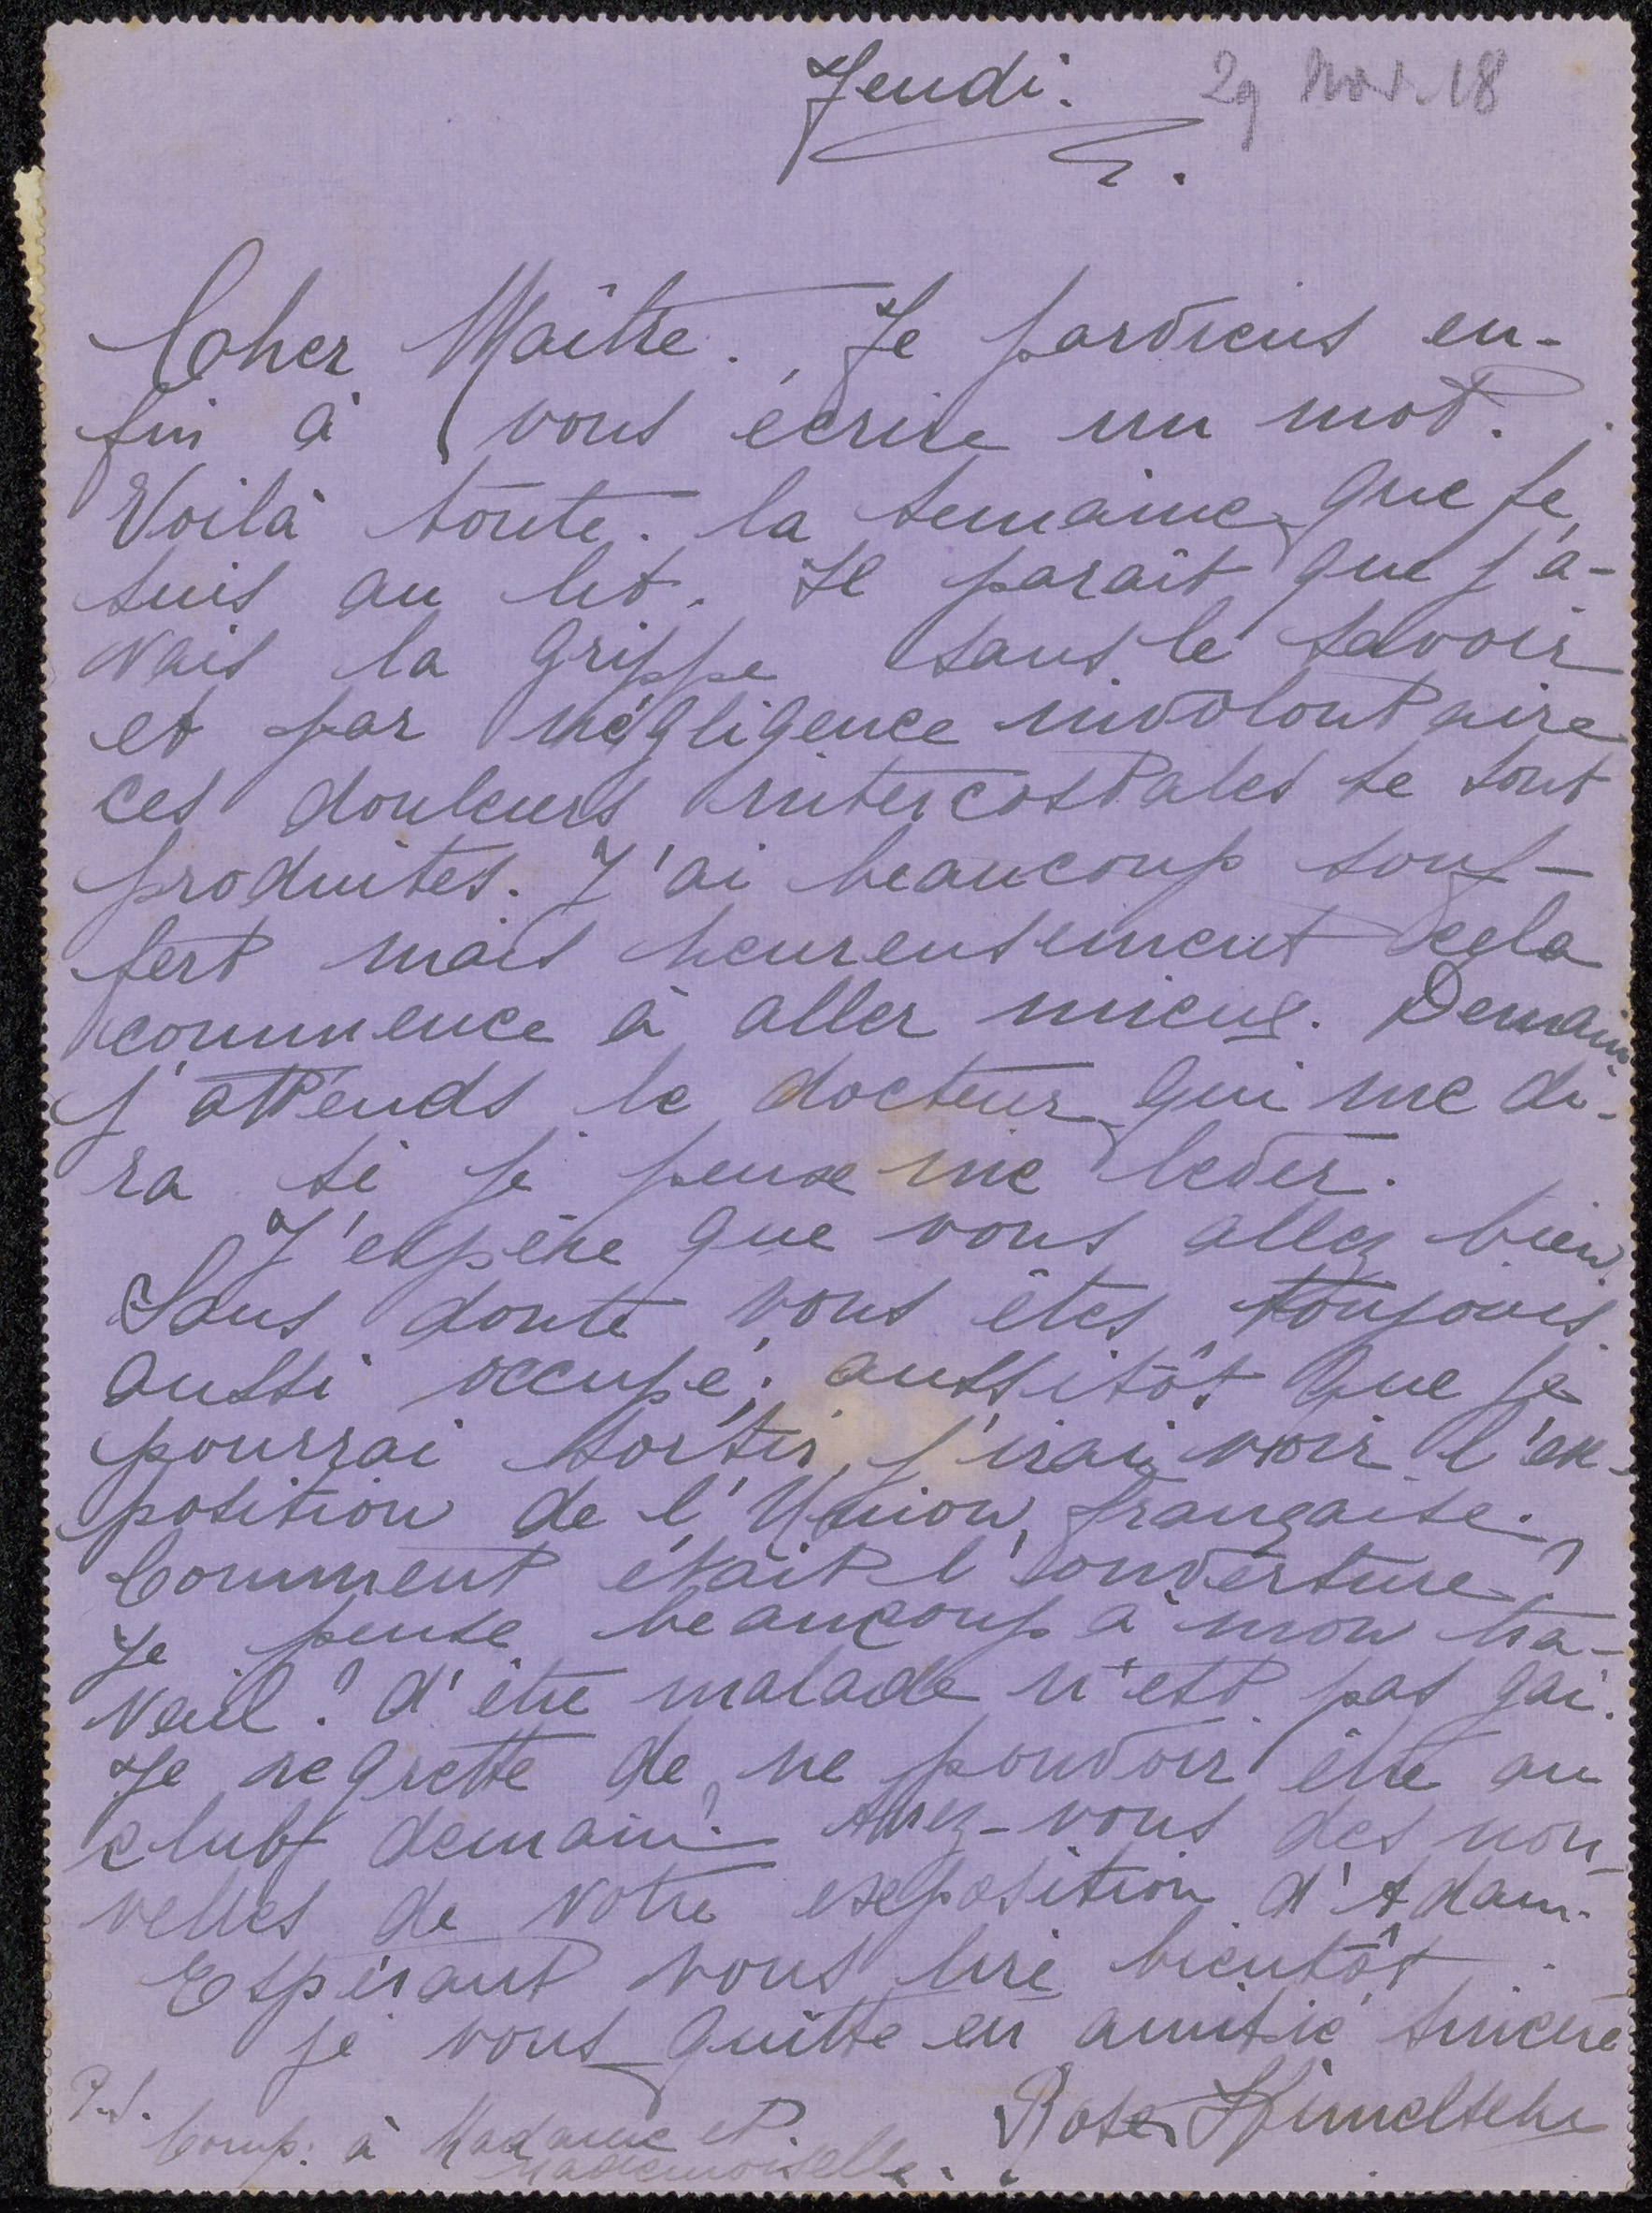 Jeudi. 29 Nov. 18
Cher Maître. Je parviens en-
fin à vous écrire un mot.
Voilà toute la semaine que je
suis au lit. Il paraît que j'a-
vais la grippe sans le savoir
et par négligence involontaire
ces douleurs intercostales se sont
produites. J'ai beaucoup souf-
fert mais heureusement cela
commence à aller mieux. Demain
j'attends le docteur qui me di-
ra si je peux me lever.
J'espère que vous allez bien.
Sans doute vous êtes toujours
aussi occupé; aussitôt que je
pourrai sortir j'irai voir l'ex-
position de l'Union française.
Comment était l'ouverture?
Je pense beaucoup à mon tra-
vail! d'être malade n'est pas gai.
Je regrette de ne pouvoir être au
club demain! Avez-vous des nou-
velles de votre exposition d'Adam.
Espérant vous lire bientôt
je vous quitte en amitié sincère
Rose
P.S.
Comp: à Madame et
Mademoiselle.